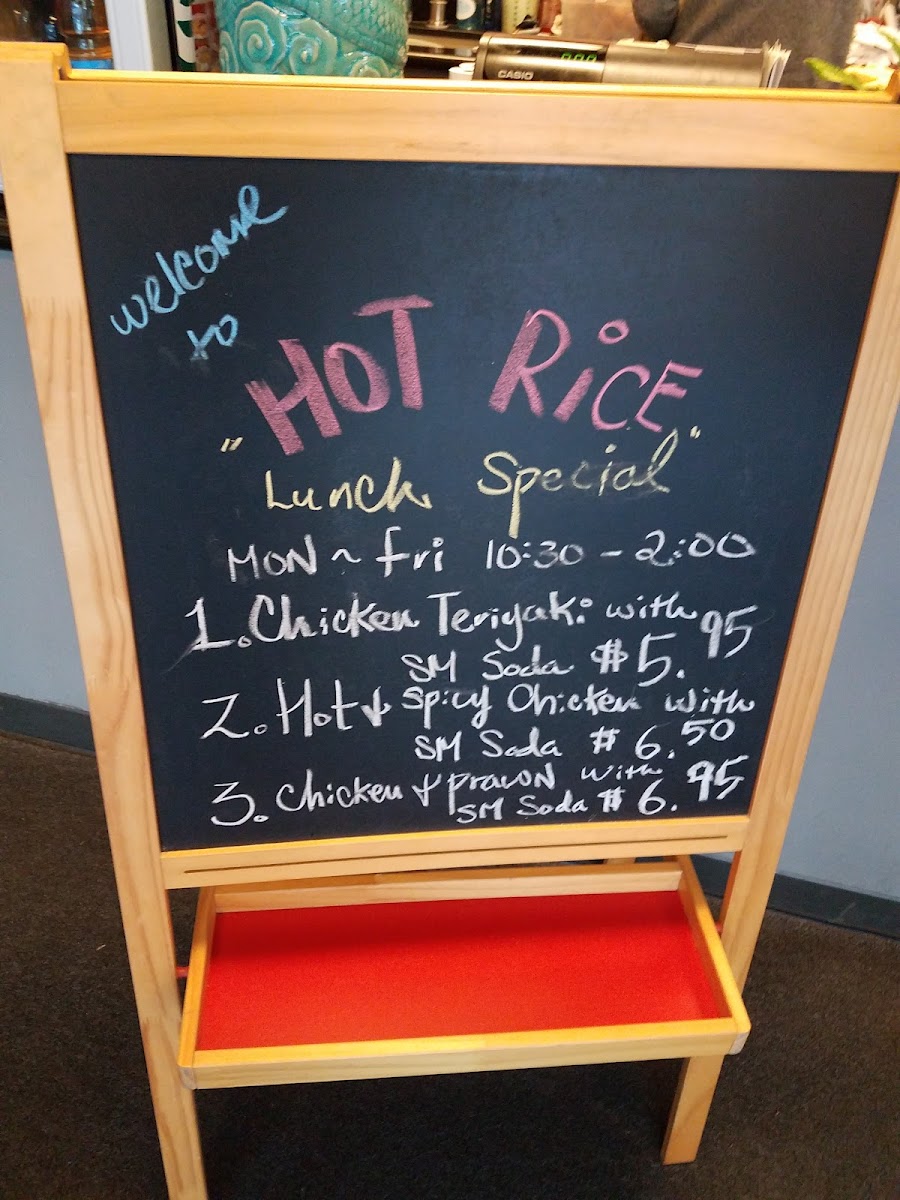 CASIO
welcome
to
HOT RiCE
"Lunch Special"
MON ~ fri 10:30 - 2:00
1. Chicken Teriyaki with
SM Soda $5.95
2. Hot & Spicy Chicken with
SM Soda $6.50
3. Chicken & prawn with
SM Soda $6.95